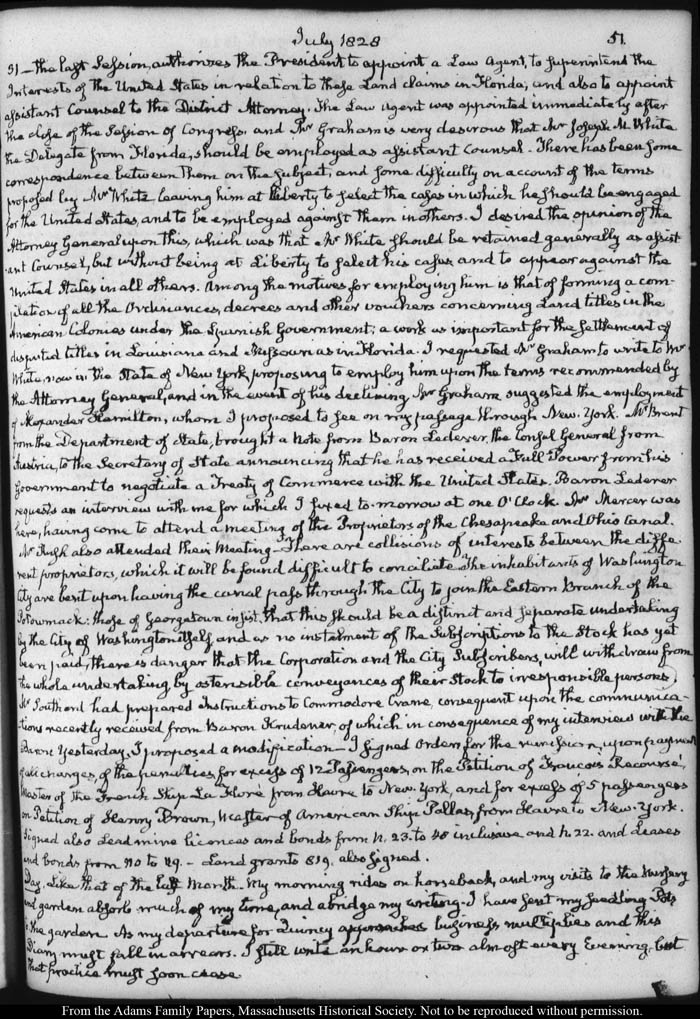 July 1828 51.
31 – the last Session, authorizes the President to appoint a Law Agent, to superintend the
Interests of the United States in relation to these Land claims in Florida, and also to appoint
assistant Counsel to the District Attorney. The Law agent was appointed immediately after
the close of the Session of Congress. and Mr Graham is very desirous that Mr Joseph M. White
the Delegate from Florida, should be employed as assistant Counsel. There has been some
correspondence between them on the subject; and some difficulty on account of the terms
proposed by Mr White leaving him at liberty to select the cases in which he should be engaged
for the United States, and to be employed against them in others. I desired the opinion of the
Attorney General upon this, which was that Mr White should be retained generally as assist
ant Counsel, but without being at Liberty to select his cases and to appear against the
United States in all others. Among the motives for employing him is that of forming a com-
pilation of all the Ordinances, decrees and other vouchers concerning Land titles in the
American Colonies under the Spanish Government; a work as important for the settlement of
disputed titles in Louisiana and Missouri as in Florida. I requested Mr Graham to write to Mr
White, now in the State of New York, proposing to employ him upon the terms recommended by
the Attorney General, and in the event of his declining Mr Graham suggested the employment
of Alexander Hamilton, whom I proposed to see on my passage through New-York. Mr Brent
from the Department of State, brought a Note from Baron Lederer, the Consul General from
Austria, to the Secretary of State announcing that he has received a Full Power from his
Government to negotiate a Treaty of Commerce with the United States. Baron Lederer
requests an interview with me for which I fixed to-morrow at one O'Clock. Mr Mercer was
here, having come to attend a meeting of the Proprietors of the Chesapeake and Ohio Canal.
Mr Rush also attended their Meeting – There are collisions of interests between the diffe-
rent proprietors, which it will be found difficult to conciliate. The inhabitants of Washington
City are bent upon having the canal pass through the City to join the Eastern Branch of the
Potowmack: those of Georgetown insist that this should be a distinct and separate undertaking
by the City of Washington itself, and as no instalment of the Subscriptions to the Stock has yet
been paid, there is danger that the Corporation and the City Subscribers, will withdraw from
the whole undertaking by ostensible conveyances of their Stock to irresponsible persons.
Mr Southard had prepared Instructions to Commodore Crane, consequent upon the communica-
tions recently received from Baron Krudener, of which in consequence of my interview with the
Baron Yesterday, I proposed a modification – I signed Orders for the remission, upon payment
of all charges, of the penalties for excess of 12 Passengers, on the Petition of Francois Recourse,
Master of the French Ship La Flore from Havre to New-York, and for excess of 5 passengers
on Petition of Henry Brown, Master of American Ship Pallas, from Havre to New-York.
Signed also Lead mine licences and bonds from N. 23. to 40 inclusive and N. 22. and Leases
and bonds from 110 to 119. – Land grants 819. also signed.
Day. Like that of the last Month. My morning rides on horseback, and my visits to the Nursery
and garden absorb much of my time, and abridge my writing. I have sent my seedling Pots
to the garden. As my departure for Quincy approaches business multiplies and this
Diary must fall in arrears. I still write an hour or two almost every Evening, but
that practice must soon cease
From the Adams Family Papers, Massachusetts Historical Society. Not to be reproduced without permission.